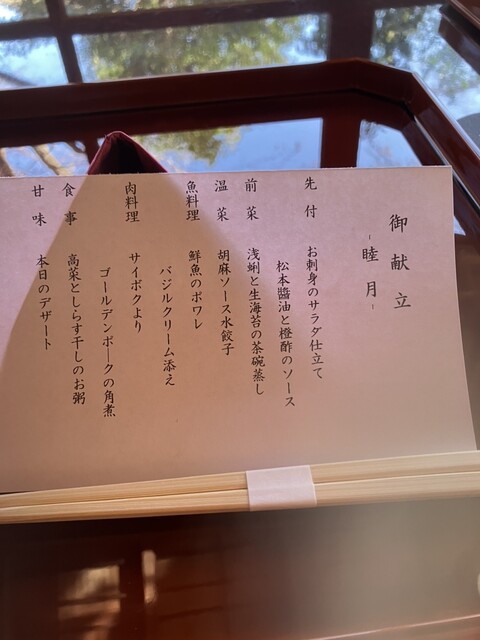 御献立
-睦月-
先付 お刺身のサラダ仕立て
松本醬油と橙酢のソース
前菜 浅蜊と生海苔の茶碗蒸し
温菜 胡麻ソース水餃子
魚料理 鮮魚のポワレ
バジルクリーム添え
肉料理 サイボクより
ゴールデンポークの角煮
食事 高菜としらす干しのお粥
甘味 本日のデザート